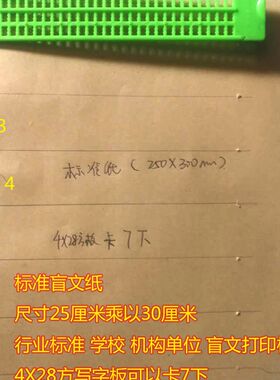 3
标准纸（250X300mm）
4
4X28方板 卡7下
标准盲文纸
尺寸25厘米乘以30厘米
行业标准 学校 机构单位 盲文打印
4X28方写字板可以卡7下